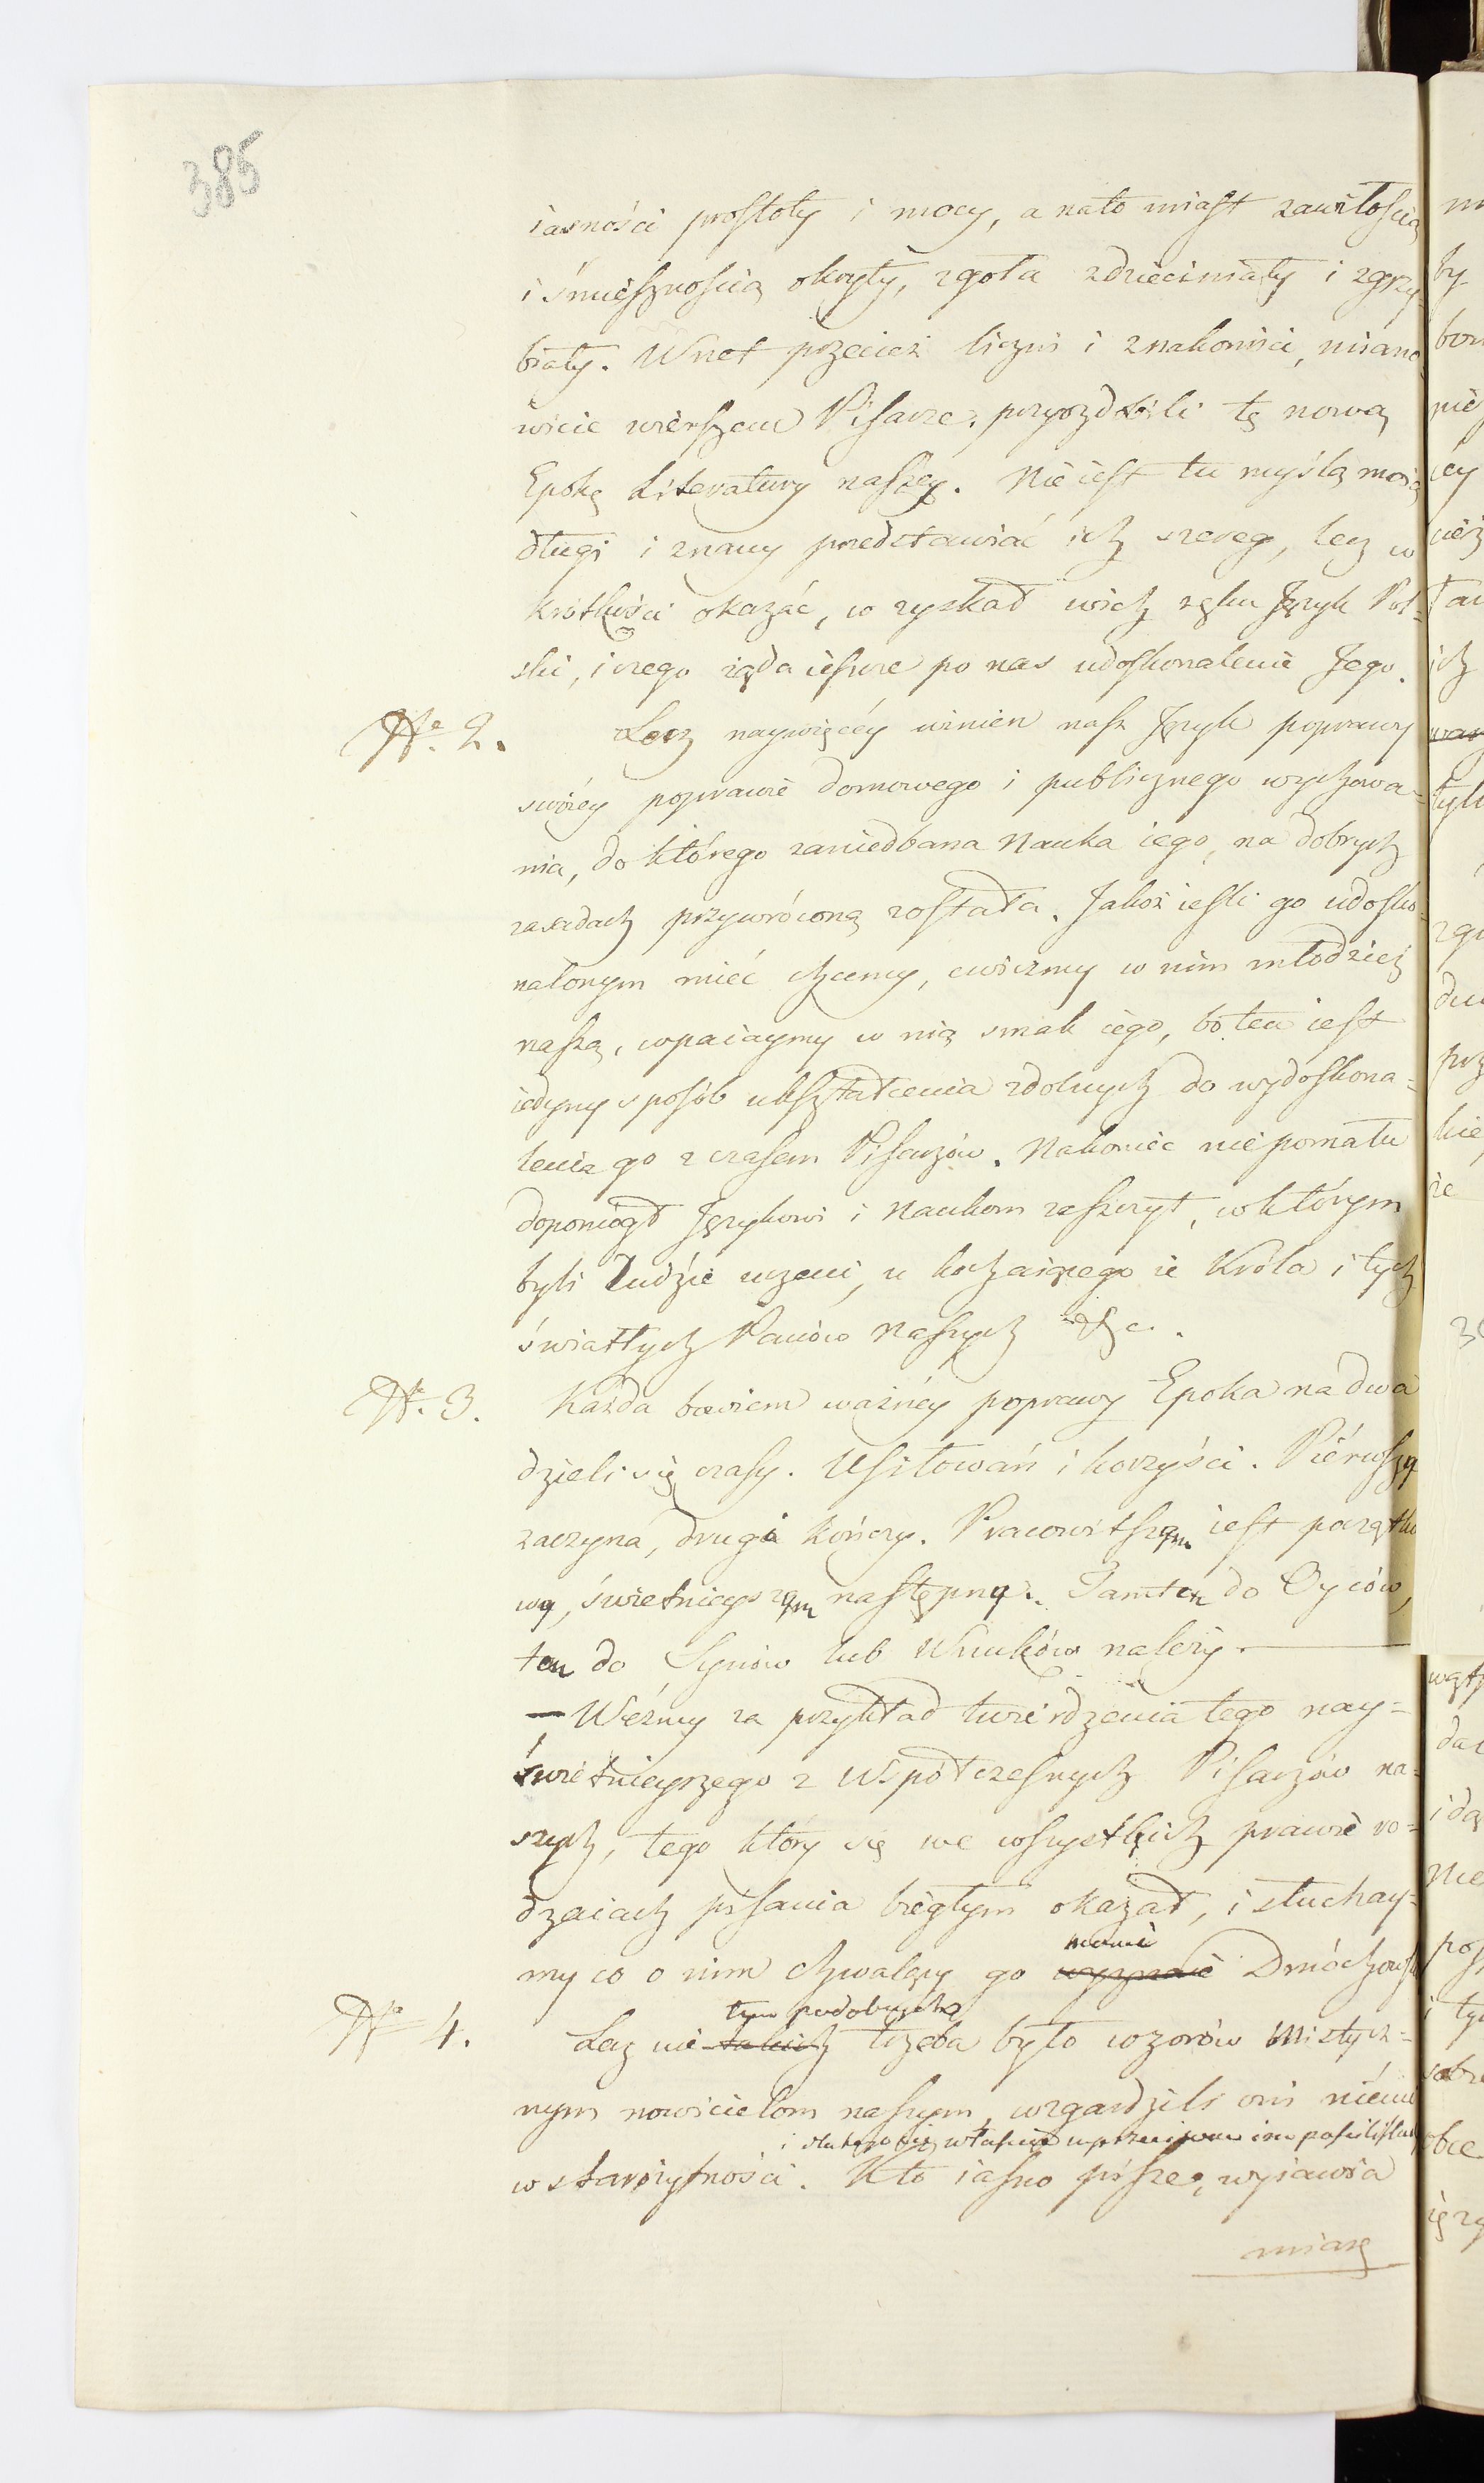 385
iasności prostoty i mocy, a nato miast zawiłością
i śmiesznością okryty, zgoła zdzieciniały i zgrzy-
biały. Wnet przecież liczni i znakomici, miano
wicie wierszem Pisarze, przyozdobili tę nową
Epokę Literatury naszey. Nie iest tu myślą moią
długi i znany przedstawiać ich szereg, lecz w
krótkości okazać, co zyskał w ich ręku Język Pol-
ski, i czego żąda ieszcze po nas udoskonalenie Jego.
Nº 2. Lecz naywięcéy winien nasz Język poprawy
swoiéy poprawie domowego i publicznego wychowa-
nia, do którego zaniedbana Nauka iego, na dobrych
zasadach przywróconą została. Jakoż iesli go udosko-
nalonym mieć chcemy, cwiczmy w nim młodzież
naszą, wpaiaymy w nią smak iego, bo ten iest
iedyny sposób ukształcenia zdolnych do wydoskona-
lenia go z czasem Pisarzów. Nakoniec nie pomału
dopomógł Językowi i Naukom zaszczyt, w którym
byli Ludzie uczeni, u kochaiącego ie Króla i tych
światłych Panów naszych &c.
Nº 3. Każda bowiem ważnéy poprawy Epoka na dwa
dzieli się czasy. Usiłowań i korzyści. Piérwszy
zaczyna, drugi kończy. Pracowitszym iest początko
wy, świetnieyszym następny. Tamten do Oyców,
ten do Synów lub Wnuków należy.
— Weźmy za przykład twierdzenia tego nay-
świetnieyszego z Współczesnych Pisarzów na-
szych, tego który się we wszystkich prawie ro-
dzaiach pisania biegłym okazał, i słuchay-
mamie
my co o nim chwalący go Dmóchowski
tym podobnych
Nº 4. Lecz nie takich trzeba było wzorów Mistycz-
nym nowicielom naszym, wzgardzili oni niémi
i słuszności właśnie
w starożytności. Kto iasno pisze, wyiawia
miarę